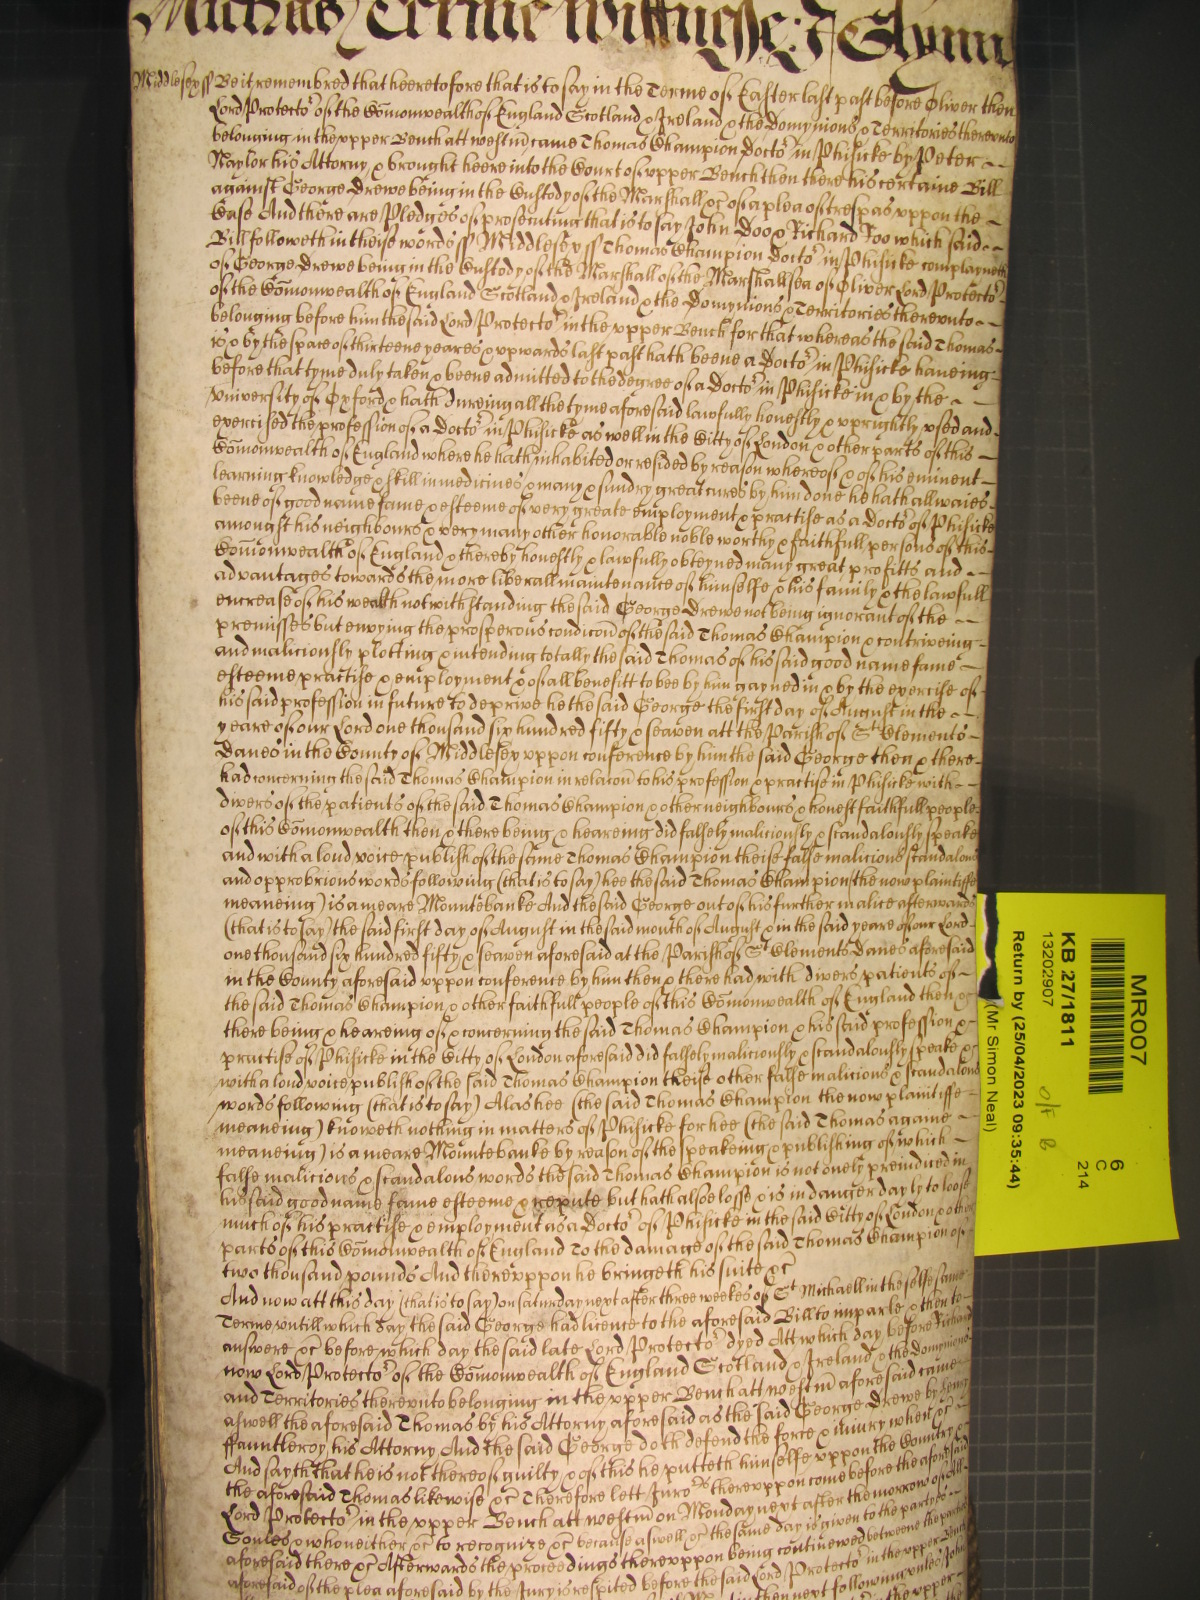 Michas Terme Wittnesse: J Glynn
Middlesex ss Be it remembred that heeretofore that is to say in the Terme of Easter last past before Oliver then
Lord Protector of the Com̄onwealth of England Scotland & Ireland & the Dominyions & Territories therevnto
belonging in the vpper Bench att westm̄ came Thomas Champion Doctor in Phisicke by Peter
Naylor his Attorny & brought heere into the Court of vpper Bench then there his certaine Bill
against George Drewe being in the Custody of the Marshall &c of a plea of trespas vppon the
Case And there are Pledges of prosecuting that is to say John Doo & Richard Roo which said
Bill followeth in theise words ss Middlesex ss Thomas Champion Doctor in Phisicke complayneth
of George Drewe being in the Custody of the Marshall of the Marshallsea of Oliver Lord Protector
of the Com̄onwealth of England Scotland & Ireland & the Domynions & Territories therevnto
belonging before him the said Lord Protector in the vpper Bench for that whereas the said Thomas
is & by the space of thirteene yeares & vpwards last past hath beene a Doctor in Phisicke haueing
before that tyme duly taken & beene admitted to the degree of a Doctor in Phisicke in & by the
Vniversity of Oxford & hath dureing all the tyme aforesaid lawfully honestly & vprightly vsed and
exercised the profession of a Doctor in Phisicke as well in the Citty of London & other parts of this
Com̄onwealth of England where he hath inhabited or resided by reason whereof & of his eminent
learning knowledge & skill in medicines & many & sundry great cures by him done he hath allwaies
beene of good name fame & esteeme of very greate employment & practise as a Doctor of Phisicke
amongst his neighbours & very many other honorable noble worthy & faithfull persons of this
Com̄onwealth of England & thereby honestly & lawfully obteyned many great profitts and
advantages towards the more liberall maintenance of himselfe & his family & the lawfull
encrease of his wealth notwithstanding the said George Drewe not being ignorant of the
premisses but envying the prosperous condicon̄ of the said Thomas Champion & contriveing
and maliciously plotting & intending totally the said Thomas of his said good name fame
esteeme practise & employment & of all benefitt to bee by him gayned in & by the exercise of
his said profession in future to deprive he the said George the first day of August in the
yeare of our Lord one thousand six hundred fifty & seaven att the Parish of St Clements
Danes in the County of Middlesex vppon conference by him the said George then & there
had concerning the said Thomas Champion in relacon̄ to his profession & practise in Phisicke with
divers of the patients of the said Thomas Champion & other neighbours & honest faithfull people
of this Com̄onwealth then & there being & heareing did falsely maliciously & scandalously speake
and with a loud voice publish of the same Thomas Champion theise false malicious scandalous
and opprobrious words following (that is to say) hee the said Thomas Champion (the now plaintiffe
meaneing) is a meare Mountebanke And the said George out of his further malice afterwards
(that is to say) the said first day of August in the said month of August & in the said yeare of our Lord
one thousand six hundred fifty & seaven aforesaid at the Parish of St Clements Danes aforesaid
in the County aforesaid vppon conference by him then & there had with divers patients of
the said Thomas Champion & other faithfull people of this Com̄onwealth of England then &
there being & heareing of & concerning the said Thomas Champion & his said profession &
practise of Phisicke in the Citty of London aforesaid did falsely maliciously & scandalously speake &
with a loud voice publish of the said Thomas Champion theise other false malicious & scandalous
words following (that is to say) Alas hee (the said Thomas Champion the now plaintiffe
meaneing) knoweth nothing in matters of Phisicke for hee (the said Thomas againe
meaneing) is a meare Mountebanke by reason of the speakeing & publishing of which
false malicious & scandalous words the said Thomas Champion is not onely preiudiced in
his said good name fame esteeme & repute but hath alsoe losse & is in danger dayly to loose
much of his practise & employment as a Doctor of Phisicke in the said Citty of London & other
parts of this Com̄onwealth of England To the damage of the said Thomas Champion of
two thousand pounds And therevppon he bringeth his suite &c
And now att this day (that is to say) on saturday next after three weekes of St Michaell in the selfe same
Terme vntill which day the said George had licence to the aforesaid Bill to imparle & then to
answere &c before which day the said late Lord Protector dyed Att which day before Richard
now Lord Protector of the Com̄onwealth of England Scotland & Ireland & the Domynions
and Territories therevnto belonging in the vpper Bench att westm̄ aforesaid came
aswell the aforesaid Thomas by his Attorny aforesaid as the said George Drewe by Henry
ffauntleroy his Attorny And the said George doth defend the force & iniury when &c
And sayth that he is not thereof guilty & of this he putteth himselfe vppon the Country &
the aforesaid Thomas likewise &c Therefore lett Jurors therevppon come before the aforesaid
Lord Protector in the vpper Bench att westm̄ on Monday next after the morrow of All
Soules & who neither &c to recognize &c because aswell &c the same day is given to the partyes
aforesaid there &c Afterwards the proceedings therevppon being continewed betweene the parties
aforesaid of the plea aforesaid by the Jury is respited before the said Lord Protector in the vpper Bench
MR007
6
C
214
KB 27/1811
13202907
Return by (25/04/2023 09:35:44)
(Mr Simon Neal)